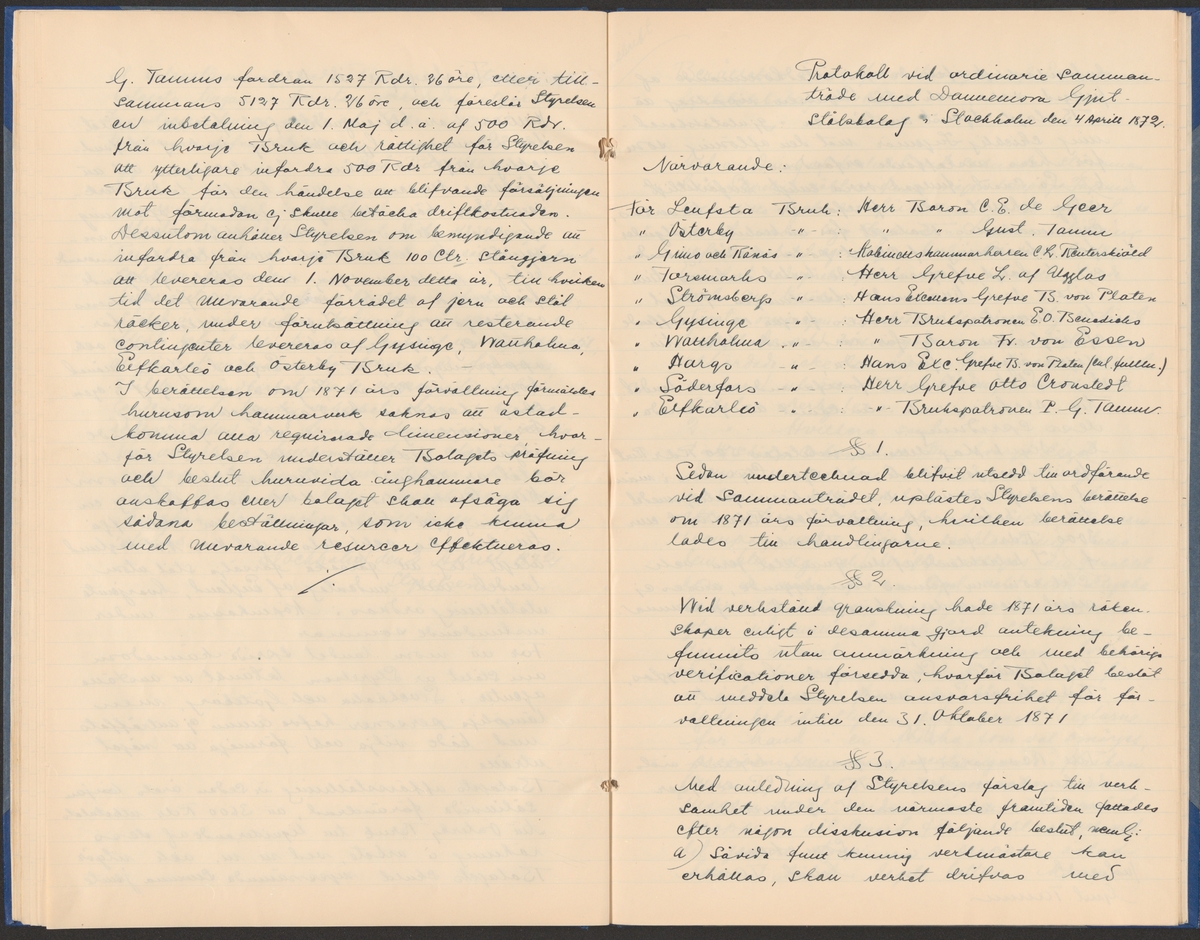 G. Tamms fordran 1527 Rdr. 26 öre, eller till-
sammans 5127 Rdr. 26 öre, och föreslår Styrelsen
en inbetalning den 1. Maj d. å. af 500 Rdr.
från hvarje Bruk och rättighet för Styrelsen
att ytterligare infordra 500 Rdr från hvarje
Bruk för den händelse att blifvande försäljningen
mot förmodan ej skulle betäcka driftkostnaden.
Dessutom anhåller Styrelsen om bemyndigande att
infordra från hvarje Bruk 100 Ctr. Stångjern
att levereras den 1. November detta år, till hvilken
tid det nuvarande förrådet af jern och stål
räcker, under förutsättning att resterande
contingenter levereras af Gysinge, Wattholma,
Elfkarleö och Österby Bruk.
I berättelsen om 1871 års förvaltning förmäldes
hurusom hammarverk saknas att åstad-
komma alla requirerade dimensioner, hvar-
för Styrelsen underställer Bolagets pröfning
och beslut huruvida ånghammare bör
anskaffas eller bolaget skall afsäga sig
sådana beställningar, som icke kunna
med nuvarande resurcer effektueras.
Protokoll vid ordinarie samman-
träde med Dannemora Gjut-
stålsbolag i Stockholm den 4 April 1872.
Närvarande:
För Leufsta Bruk: Herr Baron C. E. de Geer
" Österby " : " " Gust. Tamm
" Gimo och Rånäs " : Kabinettskammarherren C. L. Reuterskiöld
" Forsmarks " : Herr Grefve L. af Ugglas
" Strömsbergs " : Hans Excellens Grefve B. von Platen
" Gysinge " : Herr Brukspatronen E. O. Benedicks
" Wattholma " : " Baron Fr. von Essen
" Hargs " : Hans Exc. Grefve B. von Platen (enl. fullm.)
" Söderfors " : Herr Grefve Otto Cronstedt
" Elfkarleö " : " Brukspatronen P. G. Tamm.
§ 1.
Sedan undertecknad blifvit utsedd till ordförande
vid Sammanträdet, upplästes Styrelsens berättelse
om 1871 års förvaltning, hvilken berättelse
lades till handlingarne.
§ 2.
Wid verkställd granskning hade 1871 års räken-
skaper enligt å desamma gjord anteckning be-
funnits utan anmärkning och med behöriga
verificationer försedda, hvarför Bolaget beslöt
att meddela Styrelsen ansvarsfrihet för för-
valtningen intill den 31. Oktober 1871
§ 3.
Med anledning af Styrelsens förslag till verk-
samhet under den närmaste framtiden fattades
efter någon disskusion följande beslut, neml.:
a) Såvida fullt kunnig verkmästare kan
erhållas, skall verket drifvas med